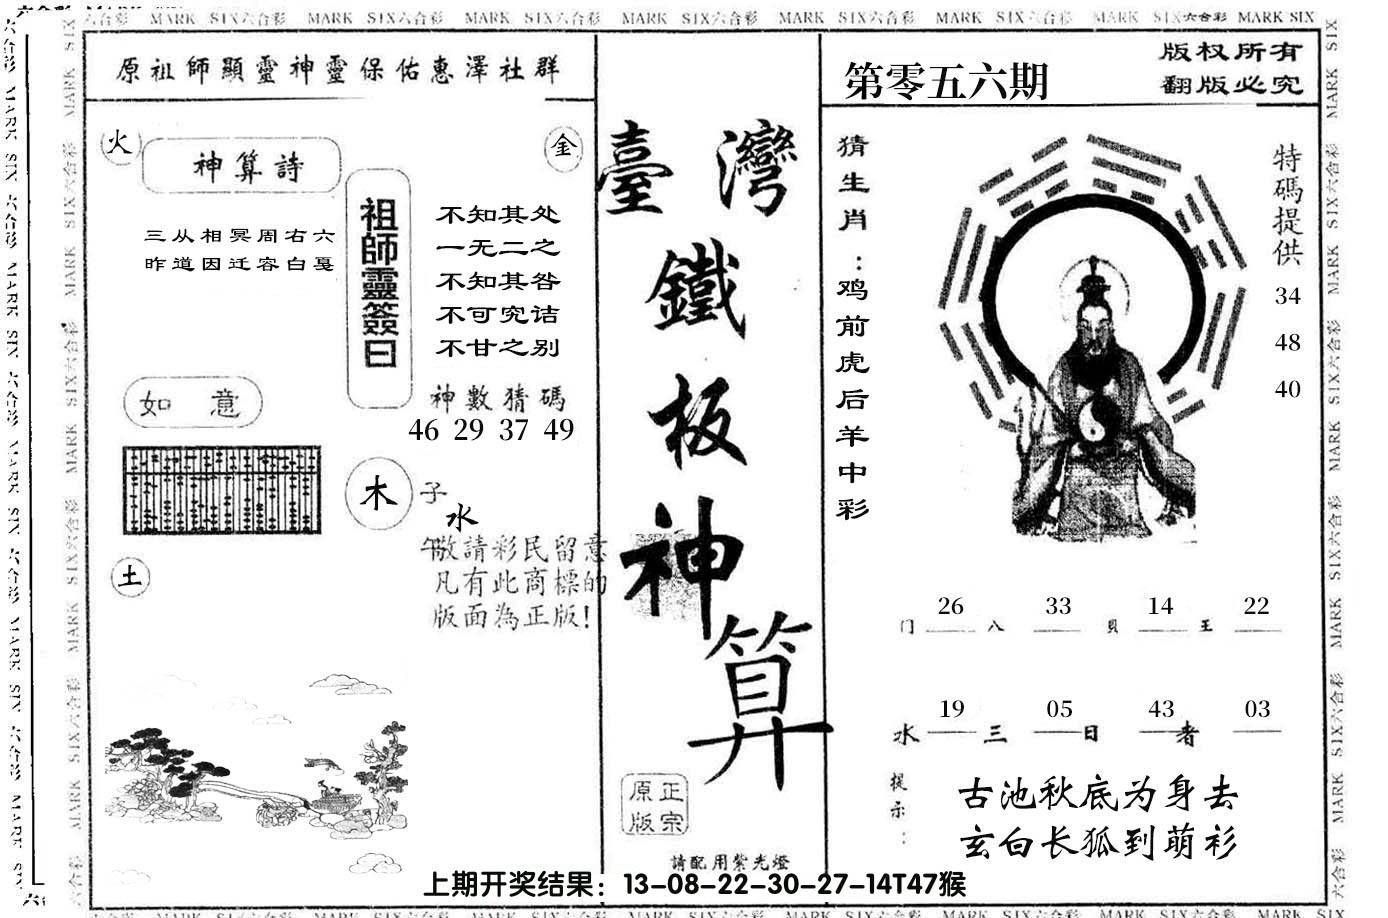 MARK SIX六合彩 MARK SIX六合彩 MARK SIX六合彩 MARK SIX六合彩 MARK SIX六合彩 MARK SIX六合彩 MARK SIX六合彩 MARK SIX
原祖師顯靈神靈保佑惠澤社群
火
金
神算詩
三从相冥周右六
昨道因迁容白戛
祖師靈簽曰
不知其处
一无二之
不知其咎
不可究诘
不甘之别
神數猜碼
46 29 37 49
如意
木
子
水
午
土
敬請彩民留意
凡有此商標的
版面為正版!
臺灣
鐵
板
神
算
正宗
原版
請配用紫光燈
第零五六期
版权所有
翻版必究
猜生肖:鸡前虎后羊中彩
特碼提供
34
48
40
门 26 八 33 貝 14 王 22
水 19 三 05 日 43 者 03
提示:
古池秋底为身去
玄白长狐到萌衫
上期开奖结果：13-08-22-30-27-14T47猴